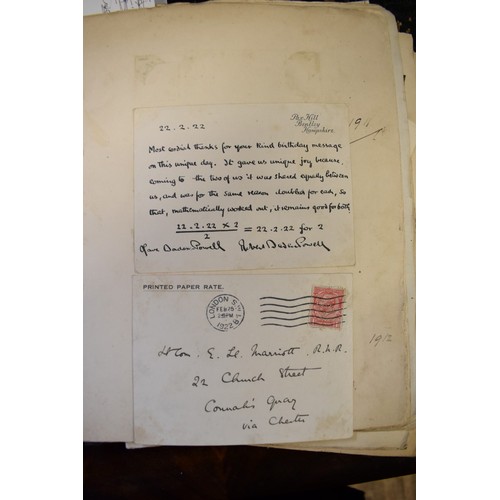 22.2.22
Pax Hill
Bentley
Hampshire
Most cordial thanks for your kind birthday message
on this unique day. It gave us unique joy because,
coming to the two of us it was shared equally between
us, and was for the same reason doubled for each, so
that, mathematically worked out, it remains good for both
22.2.22 x 2
2
= 22.2.22 for 2
Olave Baden-Powell Robert Baden-Powell
1911
PRINTED PAPER RATE.
LONDON S.W.
FEB 28
1922
Lt Com. E. Ll. Marriott. R.N.R.
22 Church Street
Connah's Quay
via Chester
1912